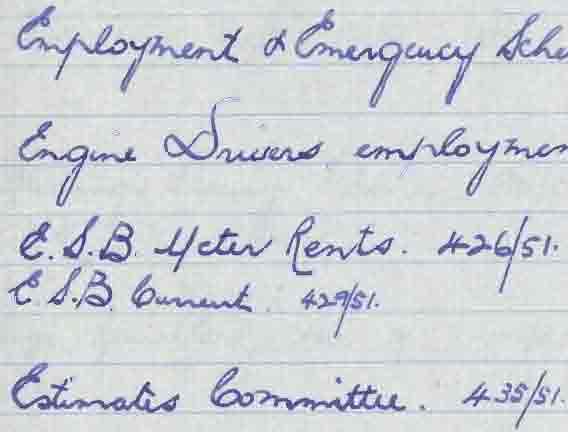 Employment & Emergency Sche
Engine Drivers employmen
E.S.B. Meter Rents. 426/51.
E.S.B. Current. 429/51.
Estimates Committee. 435/51.